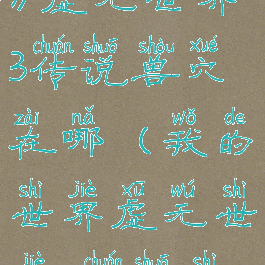 虚无世界
chuán shuō shòu xué
3传说兽穴
zài nǎ wǒ de
在哪（我的
shì jiè xū wú shì
世界虚无世
jiè chuán shuō shì